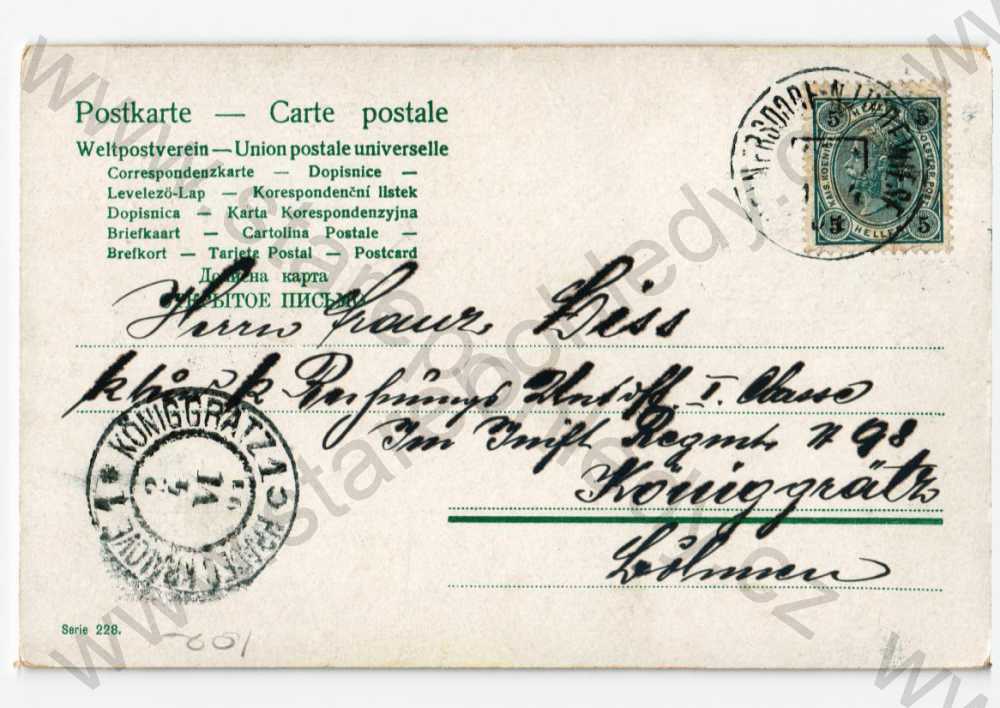 Postkarte — Carte postale
Weltpostverein — Union postale universelle
Correspondenzkarte — Dopisnice —
Levelező-Lap — Korespondenční listek
Dopisnica — Karta Korespondenzyjna
Briefkaart — Cartolina Postale —
Brefkort — Tarjeta Postal — Postcard
Дописна карта
ОТКРЫТОЕ ПИСЬМО
5 HELLER 5
5 HELLER 5
Herrn Franz Liss
k und k Rechnungs Untoff. I. Classe
Im Inft Regmt N 98
Königgrätz
Böhmen
KÖNIGGRÄTZ 1
HRADEC KRÁLOVÉ 1
Serie 228.
www.starepohledy.cz